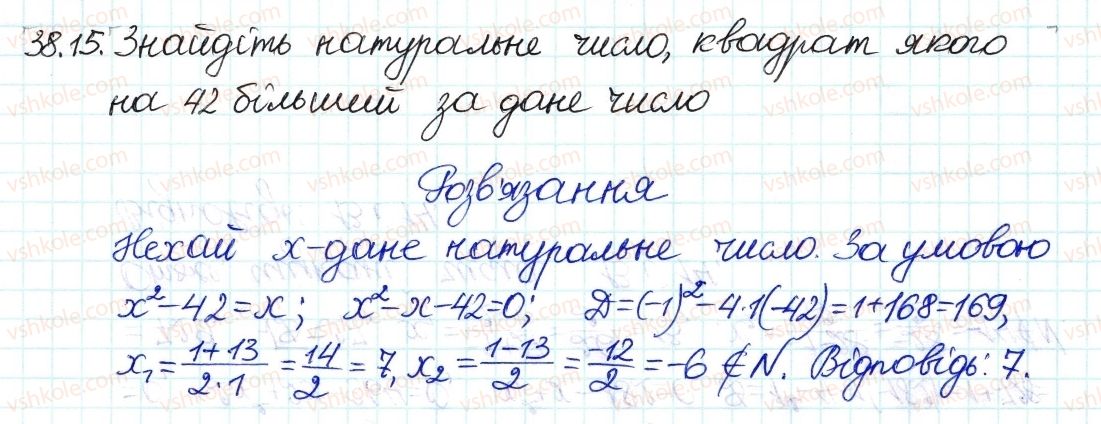 38.15. Знайдіть натуральне число, квадрат якого
на 42 більший за дане число
Розв'язання
Нехай х-дане натуральне число. За умовою
x²-42=x; x²-x-42=0; D=(-1)²-4·1(-42)=1+168=169,
x₁=(1+13)/(2·1)=14/2=7, x₂=(1-13)/2=-12/2=-6 ∉ N. Відповідь: 7.